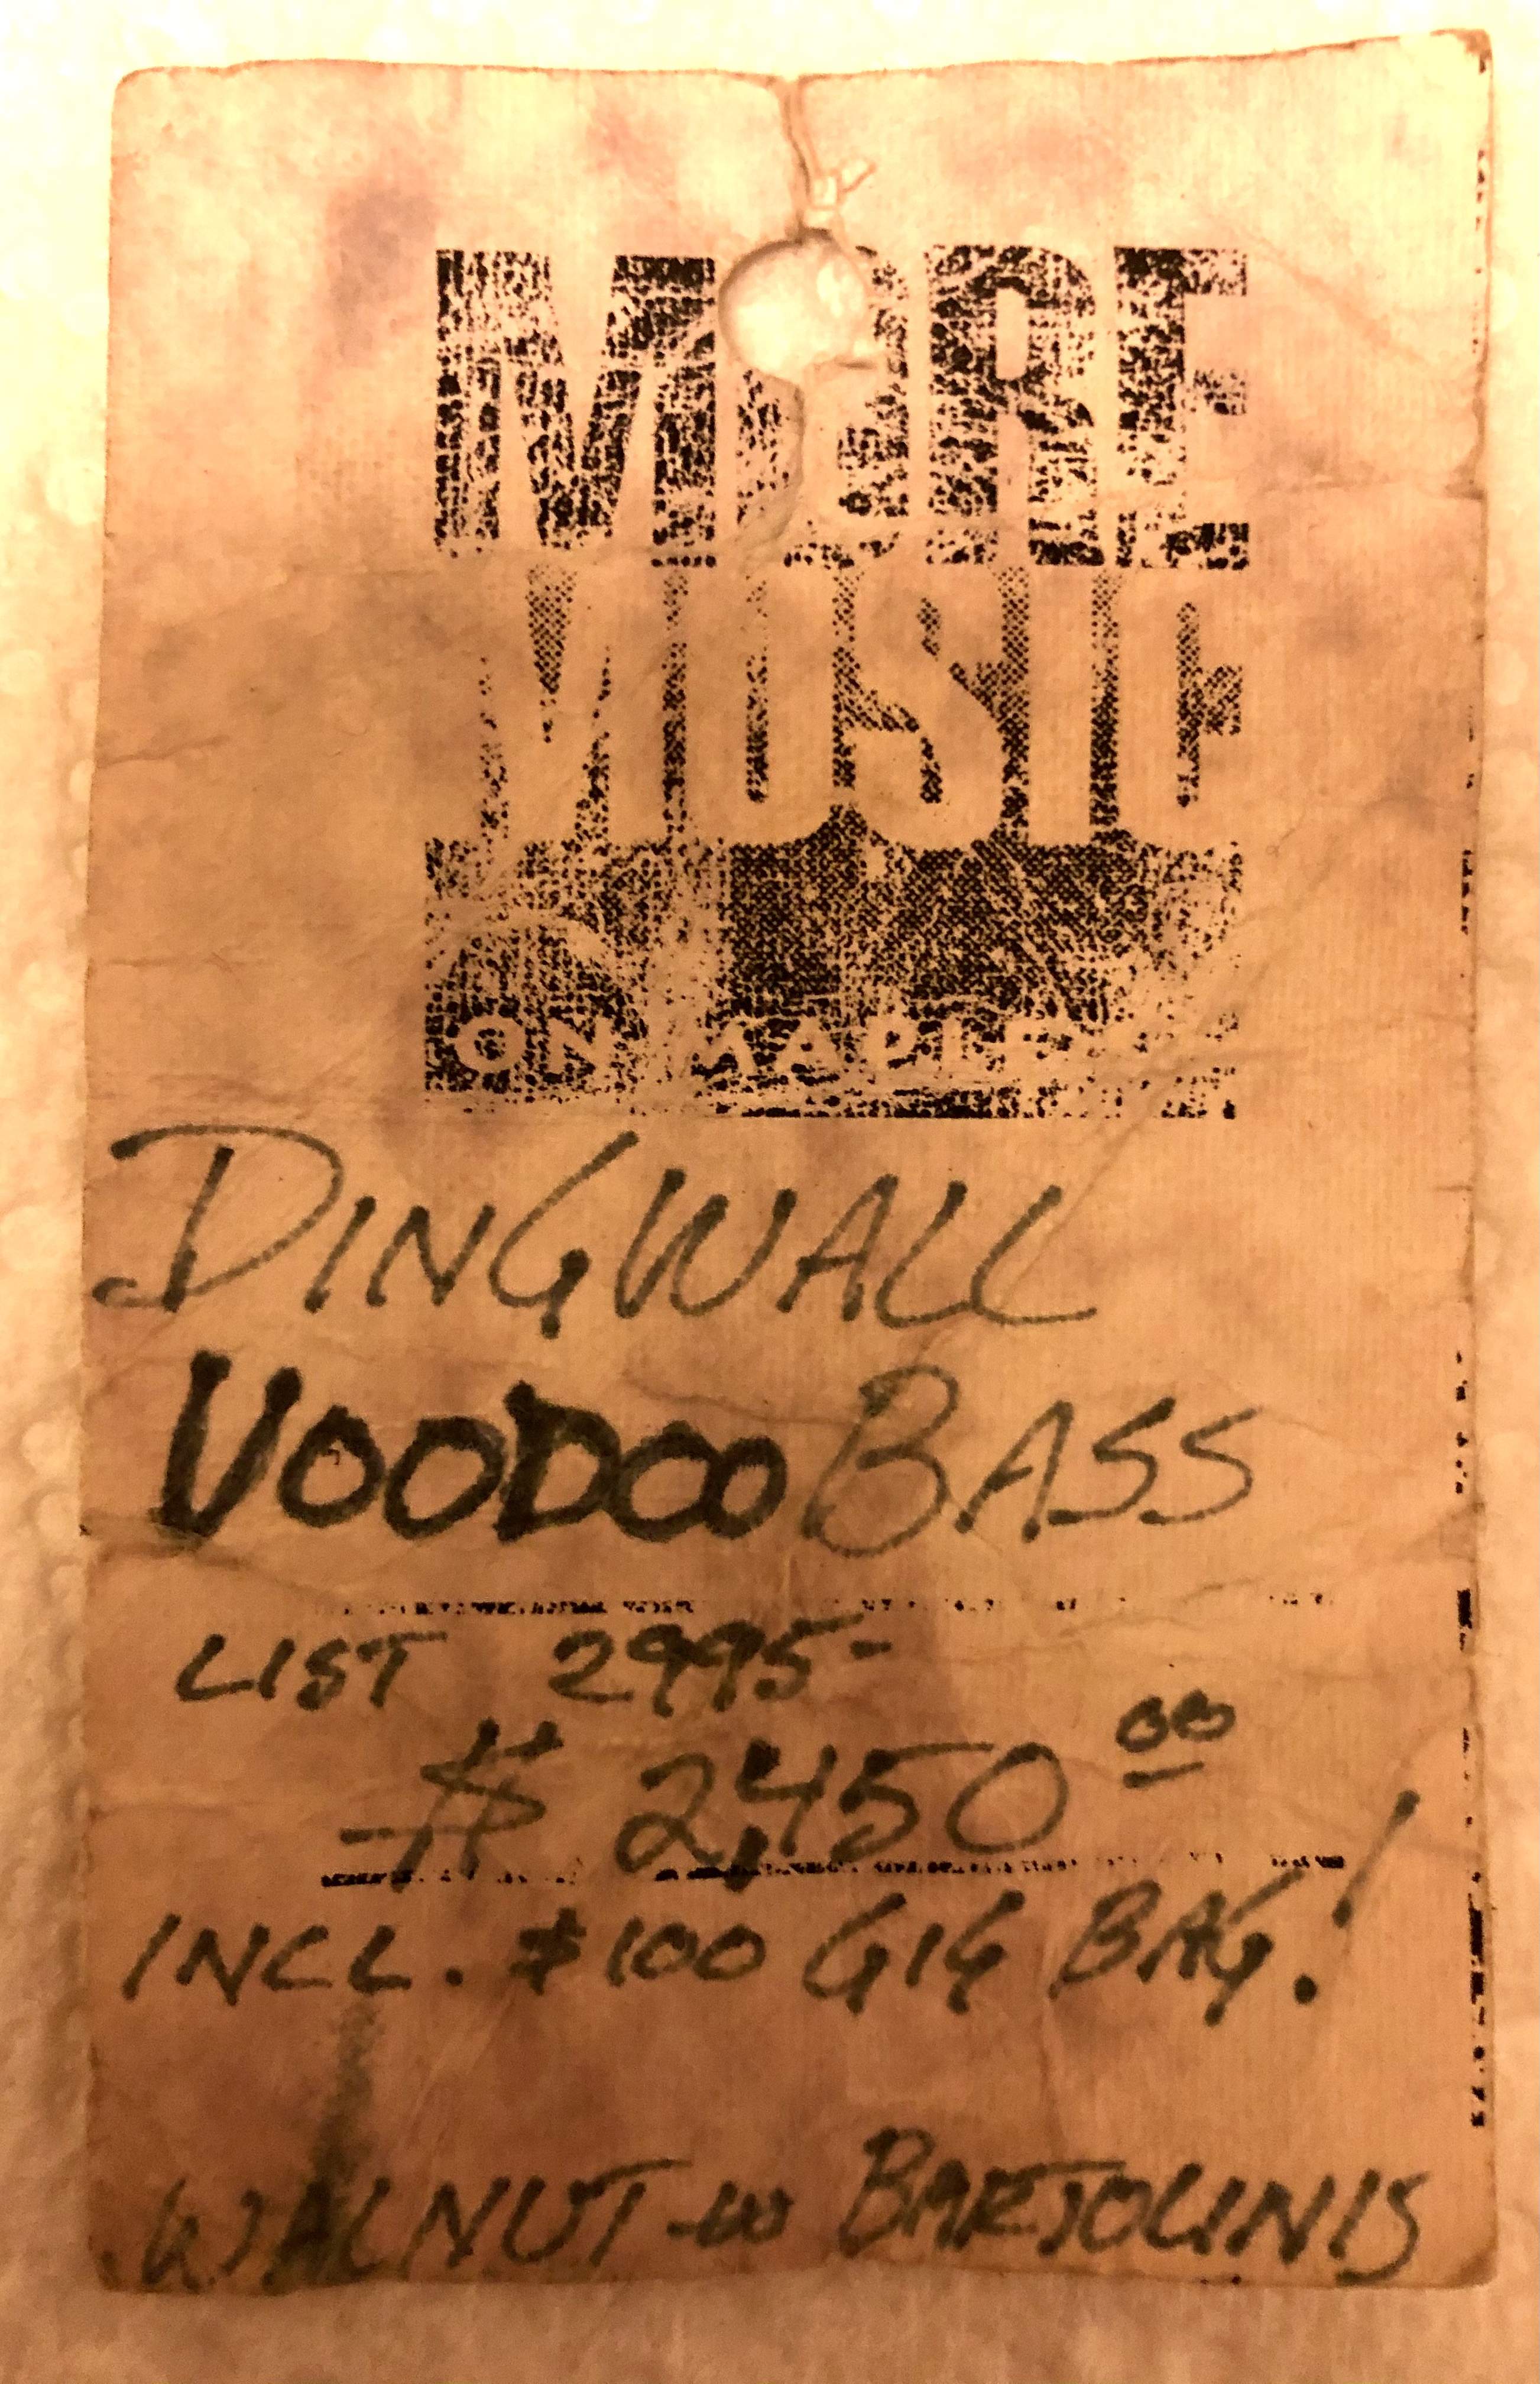 MORE
MUSIC
ON
DINGWALL
VOODOO BASS
LIST 2995-
$ 2,450 00
INCL. $100 GIG BAG!
WALNUT w BARTOLINIS